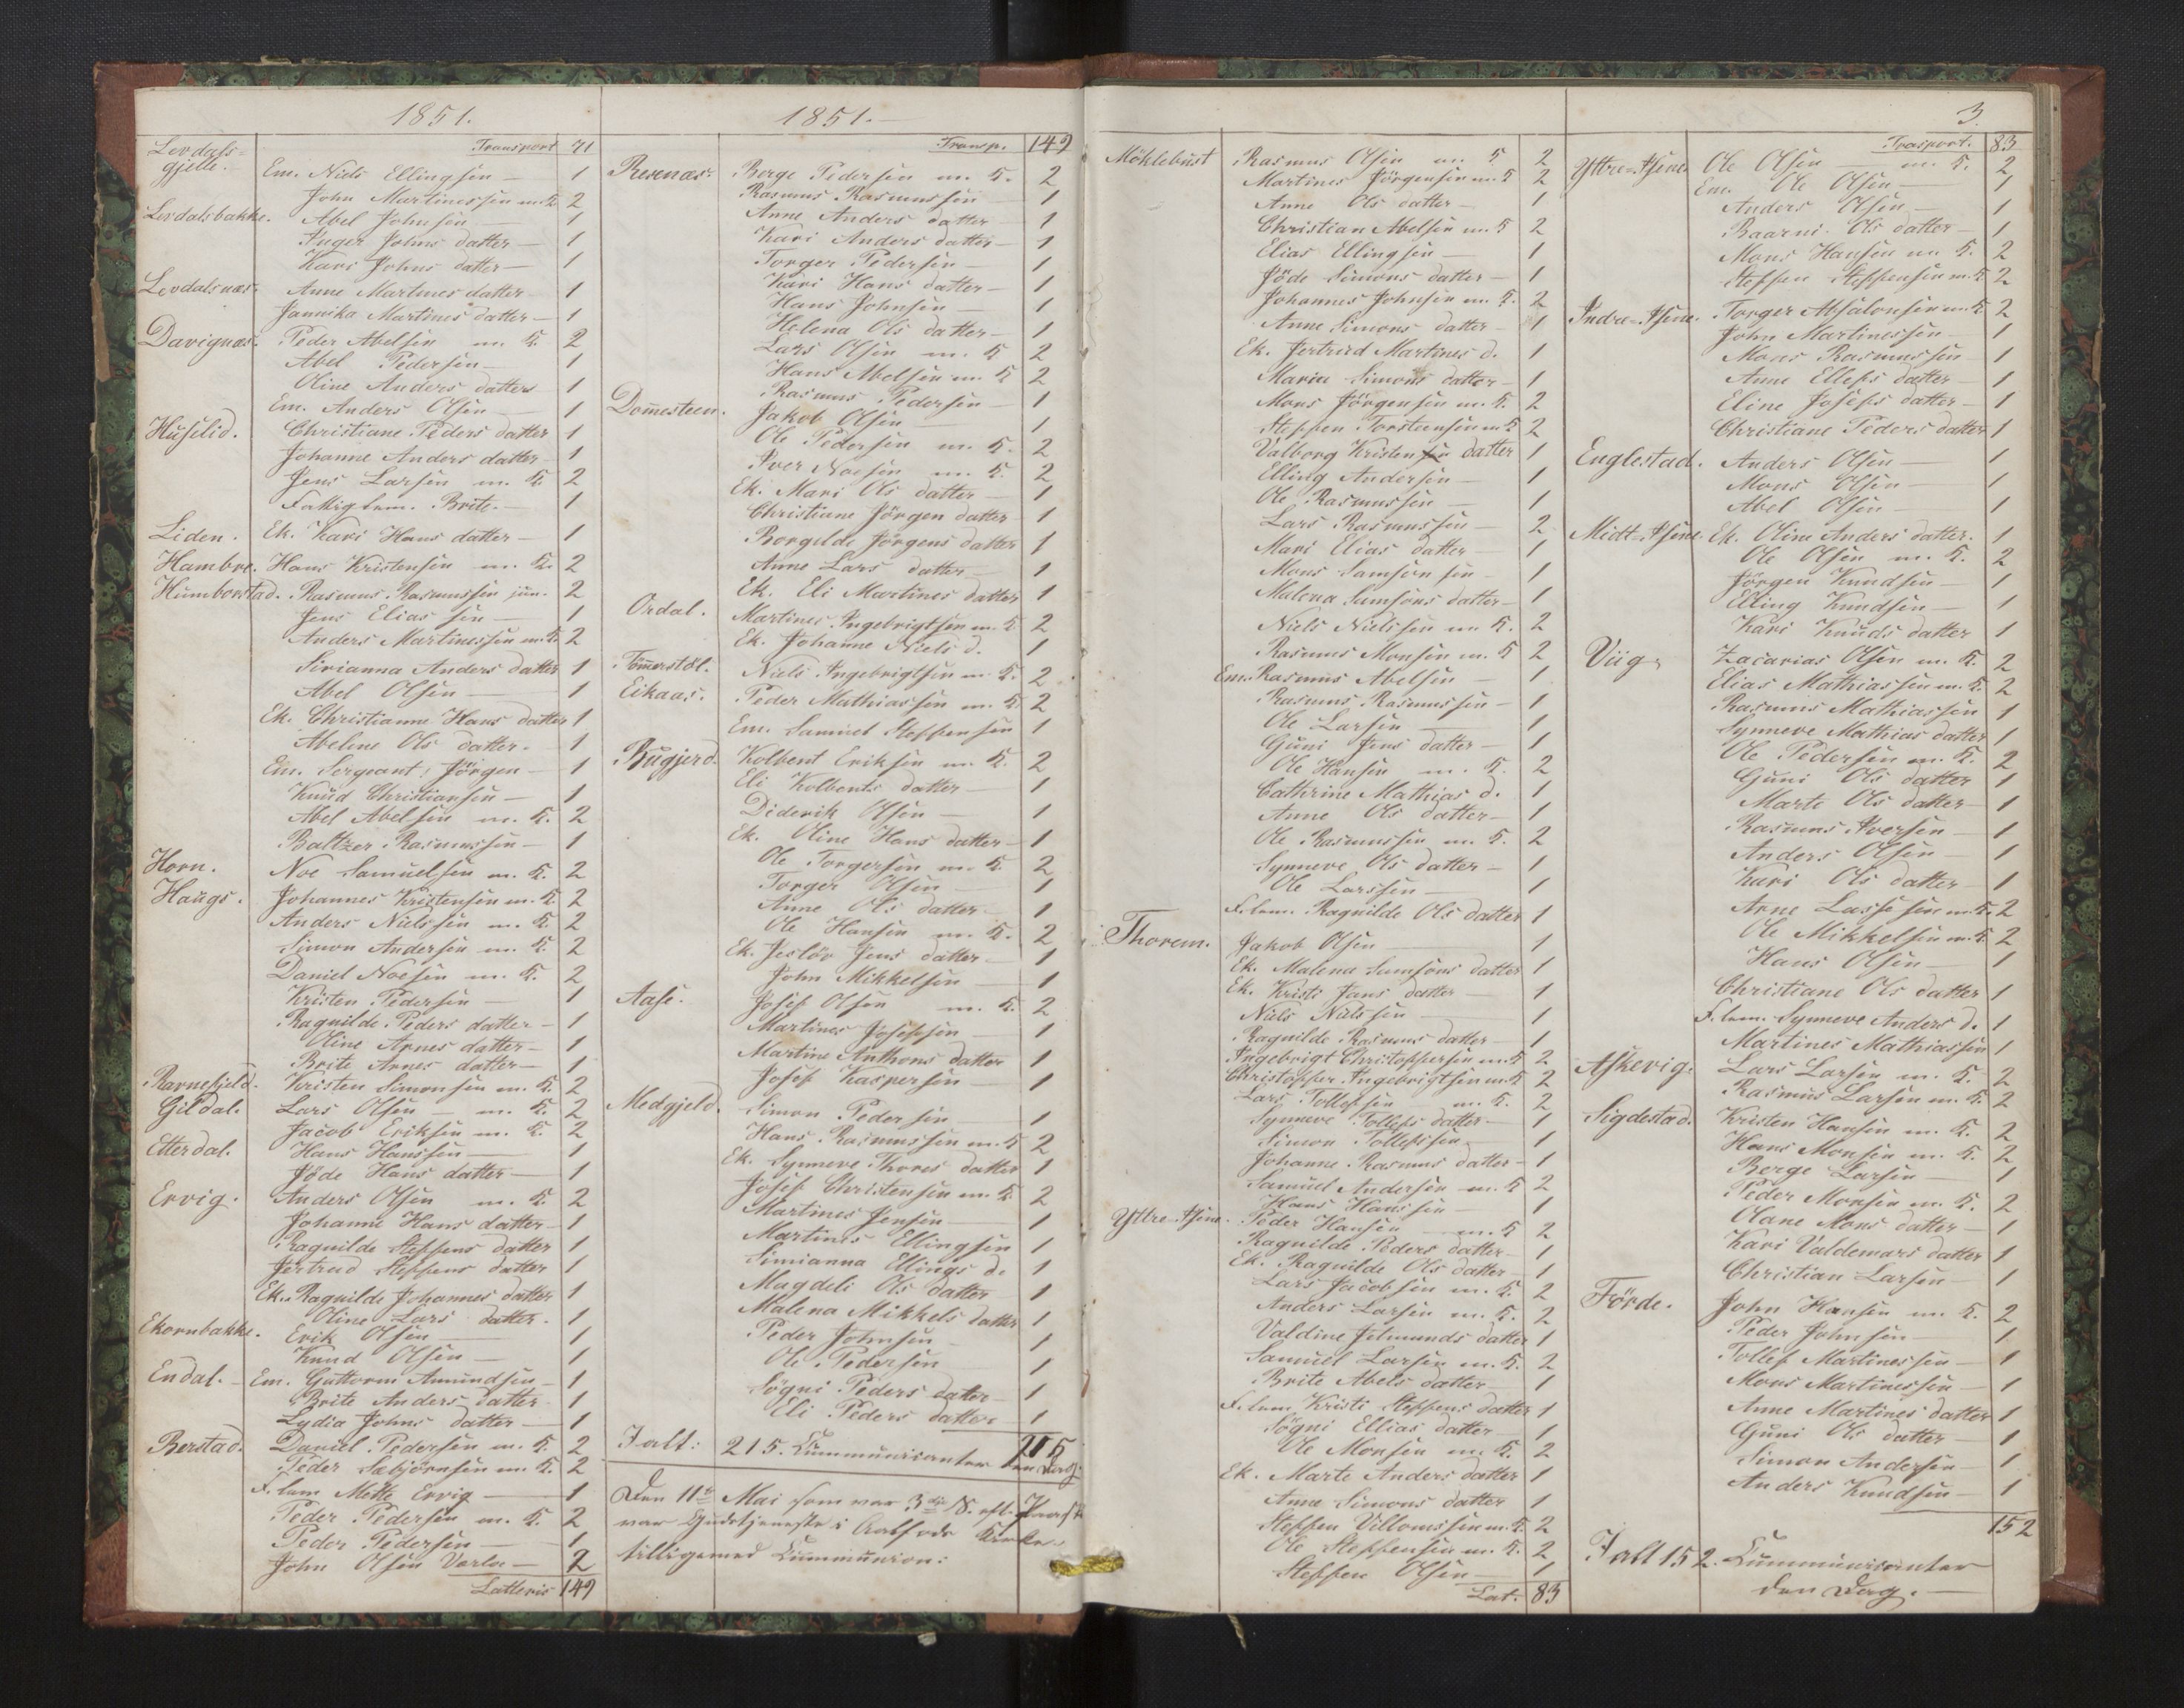 1851.
Levdals=
gjelle.
Transport 71
Em. Niels Ellingsen — 1
John Martinessen m. K. 2
Levdalsbakke. Abel Johnsen — 1
Inger Johns datter — 1
Kari Johns datter — 1
Levdalsnæs. Anne Martines datter 1
Jannika Martines datter — 1
Davignæs. Peder Abelsen m. K. 2
Abel Pedersen — 1
Oline Anders datter 1
Em. Anders Olsen — 1
Huselid. Christiane Peders datter 1
Johanne Anders datter — 1
Jens Larsen m. K. 2
Fattiglem. Brite. — 1
Liden. Ek. Kari Hans datter — 1
Hambre. Hans Kristensen m. K. 2
Humborstad. Rasmus Rasmussen jun. 2
Jens Eliassen — 1
Anders Martinessen m. K. 2
Sirianna Anders datter 1
Abel Olsen — 1
Ek. Christianne Hans datter 1
Abeline Ols datter. — 1
Em. Sergeant Jörgen — 1
Knud Christiansen — 1
Abel Abelsen m. K. 2
Baltzer Rasmussen — 1
Horn. Noe Samuelsen m. K. 2
Haugs. Johannes Kristensen m. K. 2
Anders Nielssen m. K. 2
Simon Andersen m. K. 2
Daniel Noesen m. K. 2
Kristen Pedersen — 1
Ragnilde Peders datter — 1
Oline Arnes datter — 1
Brite Arnes datter — 1
Ravnefjeld. Kristen Simonsen m. K. 2
Gildal. Lars Olsen — m. K. 2
Jacob Eriksen m. K. 2
Etterdal. Hans Hanssen — 1
Jöde Hans datter — 1
Ervig. Anders Olsen m. K. 2
Johanne Hans datter — 1
Ragnilde Steffens datter 1
Jertrud Steffens datter 1
Ek. Ragnilde Johannes datter 1
Oline Lars datter. 1
Ekornbakke. Erik Olsen — 1
Knud Olsen — 1
Endal. — Em. Guttorm Amundsen — 1
Brite Anders datter 1
Lydia Johns datter — 1
Berstad. Daniel Pedersen m. K. 2
Peder Sæbjörnsen m. K. 2
F. lem Mette Ervig — 1
Peder Pedersen m. K. 2
Peder Pedersen — 1
John Olsen — 2
Latteris 149
1851. —
Transp. 149
Resenæs. Berge Pedersen m. K. 2
Rasmus Rasmussen — 1
Anne Anders datter 1
Kari Anders datter — 1
Torger Pedersen — 1
Kari Hans datter — 1
Hans Johnsen — 1
Helena Ols datter — 1
Lars Olsen m. K. 2
Hans Abelsen m. K. 2
Rasmus Pedersen — 1
Domesteen. Jakob Olsen — 1
Ole Pedersen m. K. 2
Iver Noesen m. K. 2
Ek. Mari Ols datter — 1
Christiane Jörgen datter 1
Borgilde Jörgens datter 1
Anne Lars datter — 1
Ek. Eli Martines datter 1
Ordal. Martines Ingebrigtsen m. K. 2
Ek. Johanne Niels d. 1
Tömerstöl. Niels Ingebrigtsen m. K. 2
Eikaas. Peder Mathiassen m. K. 2
Em. Samuel Steffensen 1
Rugjerd. Kolbent Eriksen m. K. 2
Eli Kolbents datter — 1
Diderik Olsen — 1
Ek. Oline Hans datter — 1
Ole Torgersen m. K. 2
Torger Olsen — 1
Anne Ols datter — 1
Ole Hansen m. K. 2
Ek. Jeslöv Jens datter — 1
John Mikkelsen — 1
Aase. Josef Olsen m. K. 2
Martines Josefsen — 1
Martine Anthons datter 1
Josef Kaspersen — 1
Medgjeld. Simon Pedersen — 1
Hans Rasmussen m. K. 2
Ek. Synneve Thores datter 1
Josef Christensen m. K. 2
Martines Jensen — 1
Martines Ellingsen 1
Simianna Ellings d. 1
Magdeli Ols datter 1
Malena Mikkels datter 1
Peder Johnsen — 1
Ole Pedersen — 1
Sögni Peders datter — 1
Eli Peders datter — 1
Ialt: 215. Kummunicanter
Den 11te Mai som var 3die S. eft. Paaske
var Gudstjeneste i Aalfode Kirke
tilligemed Kummunion:
Möklebust Rasmus Olsen m. K. 2
Martines Jörgensen m. K. 2
Anne Ols datter — 1
Christian Abelsen m. K. 2
Elias Ellingsen — 1
Jöde Simons datter — 1
Johannes Johnsen m. K. 2
Anne Simons datter — 1
Ek. Jertrud Martines d. 1
Marie Simons datter — 1
Mons Jörgensen m. K. 2
Steffen Torsteensen m. K. 2
Valborg Kristen datter 1
Elling Andersen — 1
Ole Rasmussen — 1
Lars Rasmussen — 2
Mari Elias datter — 1
Mons Samsonsen — 1
Malena Samsons datter — 1
Niels Nielssen m. K. 2
Rasmus Monsen m. K. 2
Em. Rasmus Abelsen — 1
Rasmus Rasmussen — 1
Ole Larsen — 1
Guni Jens datter — 1
Ole Hansen m. K. 2
Cathrine Mathias d. 1
Anne Ols datter — 1
Ole Rasmussen m. K. 2
Synneve Ols datter — 1
Ole Larssen — 1
F. lem. Ragnilde Ols datter 1
Thorem. Jakob Olsen — 1
Ek. Malena Samsons datter 1
Ek. Kristi Jans datter — 1
Niels Nielssen — 1
Ragnilde Rasmus datter — 1
Ingebrigt Christoffersen m. K. 2
Christoffer Ingebrigtsen m. K. 2
Lars Tollefsen m. K. 2
Synneve Tollefs datter — 1
Simon Tollefsen 1
Johanne Rasmus datter — 1
Samuel Andersen m. K. 2
Hans Hanssen — 1
Yttre=Hjene. Peder Hansen — m. K. 2
Ragnilde Peders datter — 1
Ek. Ragnilde Ols datter — 1
Lars Jacobsen m. K. 2
Anders Larsen m. K. 2
Valdine Jetmunds datter 1
Samuel Larsen m. K. 2
Brite Abels datter 1
F. lem Kristi Steffens datter 1
Sögni Ellias datter — 1
Ole Monsen m. K. 2
Ek. Marte Anders datter 1
Anne Simons datter 1
Steffen Villomssen m. K. 2
Ole Steffensen m. K. 2
Steffen Olsen — 1
Lat. 83
3.
Trasport. 83
Yttre=Hjene Ole Olsen m. K. 2
Em. Ole Olsen — 1
Anders Olsen — 1
Baarni Ols datter — 1
Mons Hansen m. K. 2
Steffen Steffensen m. K. 2
Indre=Hjene. Torger Absalonsen m. K. 2
John Martinessen — 1
Mons Rasmussen — 1
Anne Ellefs datter — 1
Eline Josefs datter — 1
Christiane Peders datter 1
Englestad. Anders Olsen — 1
Mons Olsen — 1
Abel Olsen — 1
Midt=Hjene. Ek. Oline Anders datter. 1
Ole Olsen m. K. 2
Jörgen Knudsen — 1
Elling Knudsen — 1
Kari Knuds datter 1
Viig. Zacarias Olsen m. K. 2
Elias Mathiassen m. K. 2
Rasmus Mathiassen 1
Synneve Mathias datter 1
Ole Pedersen m. K. 2
Guni Ols datter 1
Marte Ols datter — 1
Rasmus Iversen — 1
Anders Olsen — 1
Kari Ols datter — 1
Arne Lassesen m. K. 2
Ole Mikkelsen m. K. 2
Hans Olsen — 1
Christiane Ols datter 1
F. lem. Synneve Anders d. 1
Martines Mathiassen 1
Askevig. Lars Larsen m. K. 2
Rasmus Larsen m. K. 2
Sigdestad. Kristen Hansen m. K. 2
Hans Monsen m. K. 2
Berge Larsen — 1
Peder Monsen m. K. 2
Olane Mons datter — 1
Kari Valdemars datter 1
Christian Larsen — 1
Förde. John Hansen m. K. 2
Peder Johnsen — 1
Tollef Martinessen — 1
Mons Martinessen — 1
Anne Martines datter 1
Guni Ols datter — 1
Simon Andersen — 1
Anders Knudsen — 1
152
Ialt 152. Kummunicanter
den Dag. —